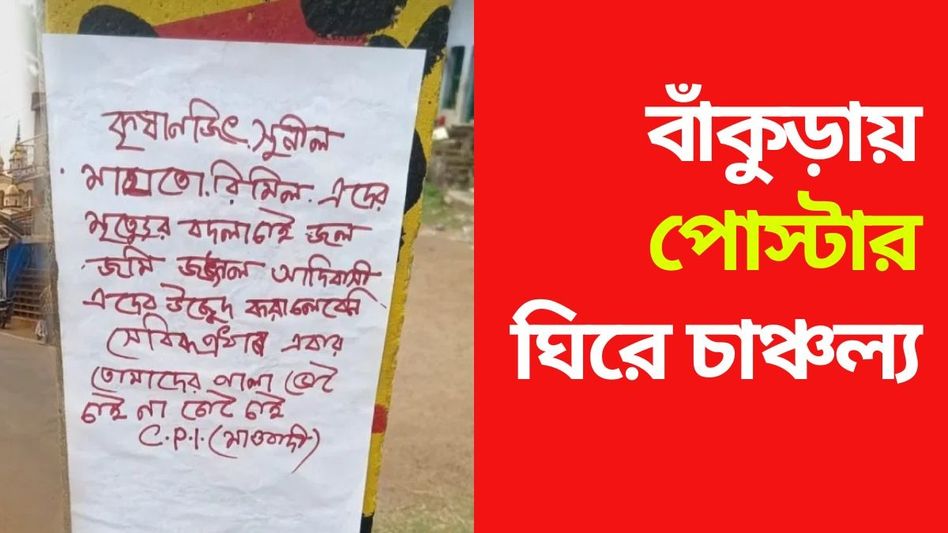 কৃষাণজিৎ, সুনীল
মাহাতো. রিমিল. এদের
মৃত্যুর বদলা চাই জল
জমি জঙ্গল আদিবাসী
এদের উচ্ছেদ করা চলবেনি
এবার
তোমাদের পালা ভোট
চাই না চোট চাই
C.P.I. (মাওবাদী)
বাঁকুড়ায়
পোস্টার
ঘিরে চাঞ্চল্য